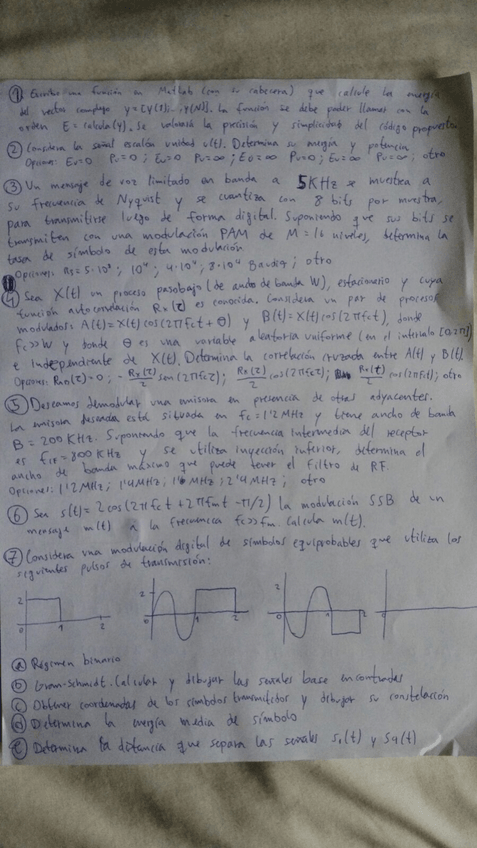 ① Escriba una función en Matlab (con su cabecera) que calcule la energía
del vector complejo y=[y(1),...,y(N)]. La función se debe poder llamar con la
orden E=calcula(y). Se valorará la precisión y simplicidad del código propuesto
② Considera la señal escalón unidad u(t). Determina su energía y potencia
Opciones: Eu=0 Pu=0; Eu=0 Pu=∞; Eu=∞ Pu=0; Eu=∞ Pu=∞; otro
③ Un mensaje de voz limitado en banda a 5KHz se muestrea a
su frecuencia de Nyquist y se cuantiza con 8 bits por muestra,
para transmitirse luego de forma digital. Suponiendo que sus bits se
transmiten con una modulación PAM de M=16 niveles, determina la
tasa de símbolo de esta modulación
Opciones: Rs=5·10³; 10⁴; 4·10⁴; 8·10⁴ Baudios; otro
④ Sea X(t) un proceso pasobajo (de ancho de banda W), estacionario y cuya
función autocorrelación Rx(τ) es conocida. Considera un par de procesos
modulados A(t)=X(t)cos(2πfct+θ) y B(t)=X(t)cos(2πfct), donde
fc>>W y donde θ es una variable aleatoria uniforme (en el intervalo [0,2π])
e independiente de X(t). Determina la correlación cruzada entre A(t) y B(t)
Opciones: RAB(τ)=0; -Rx(τ)/2 sen(2πfcτ); Rx(τ)/2 cos(2πfcτ); Rx(τ)/2 cos(2πfct); otro
⑤ Deseamos demodular una emisora en presencia de otras adyacentes.
La emisora deseada está situada en fc=1'2MHz y tiene ancho de banda
B=200KHz. Suponiendo que la frecuencia intermedia del receptor
es fIF=800KHz y se utiliza inyección inferior, determina el
ancho de banda máximo que puede tener el filtro de RF.
Opciones: 1'2MHz; 1'4MHz; 1'6MHz; 2'4MHz; otro
⑥ Sea s(t)=2cos(2πfct+2πfmt-π/2) la modulación SSB de un
mensaje m(t) a la frecuencia fc>>fm. Calcula m(t).
⑦ Considera una modulación digital de símbolos equiprobables que utiliza los
siguientes pulsos de transmisión:
2 2 2
0 1 2 0 1 2 0 1 2 0
ⓐ Régimen binario
ⓑ Gram-Schmidt. Calcular y dibujar las señales base encontradas
ⓒ Obtener coordenadas de los símbolos transmitidos y dibujar su constelación
ⓓ Determina la energía media de símbolo
ⓔ Determina la distancia que separa las señales s1(t) y s4(t)